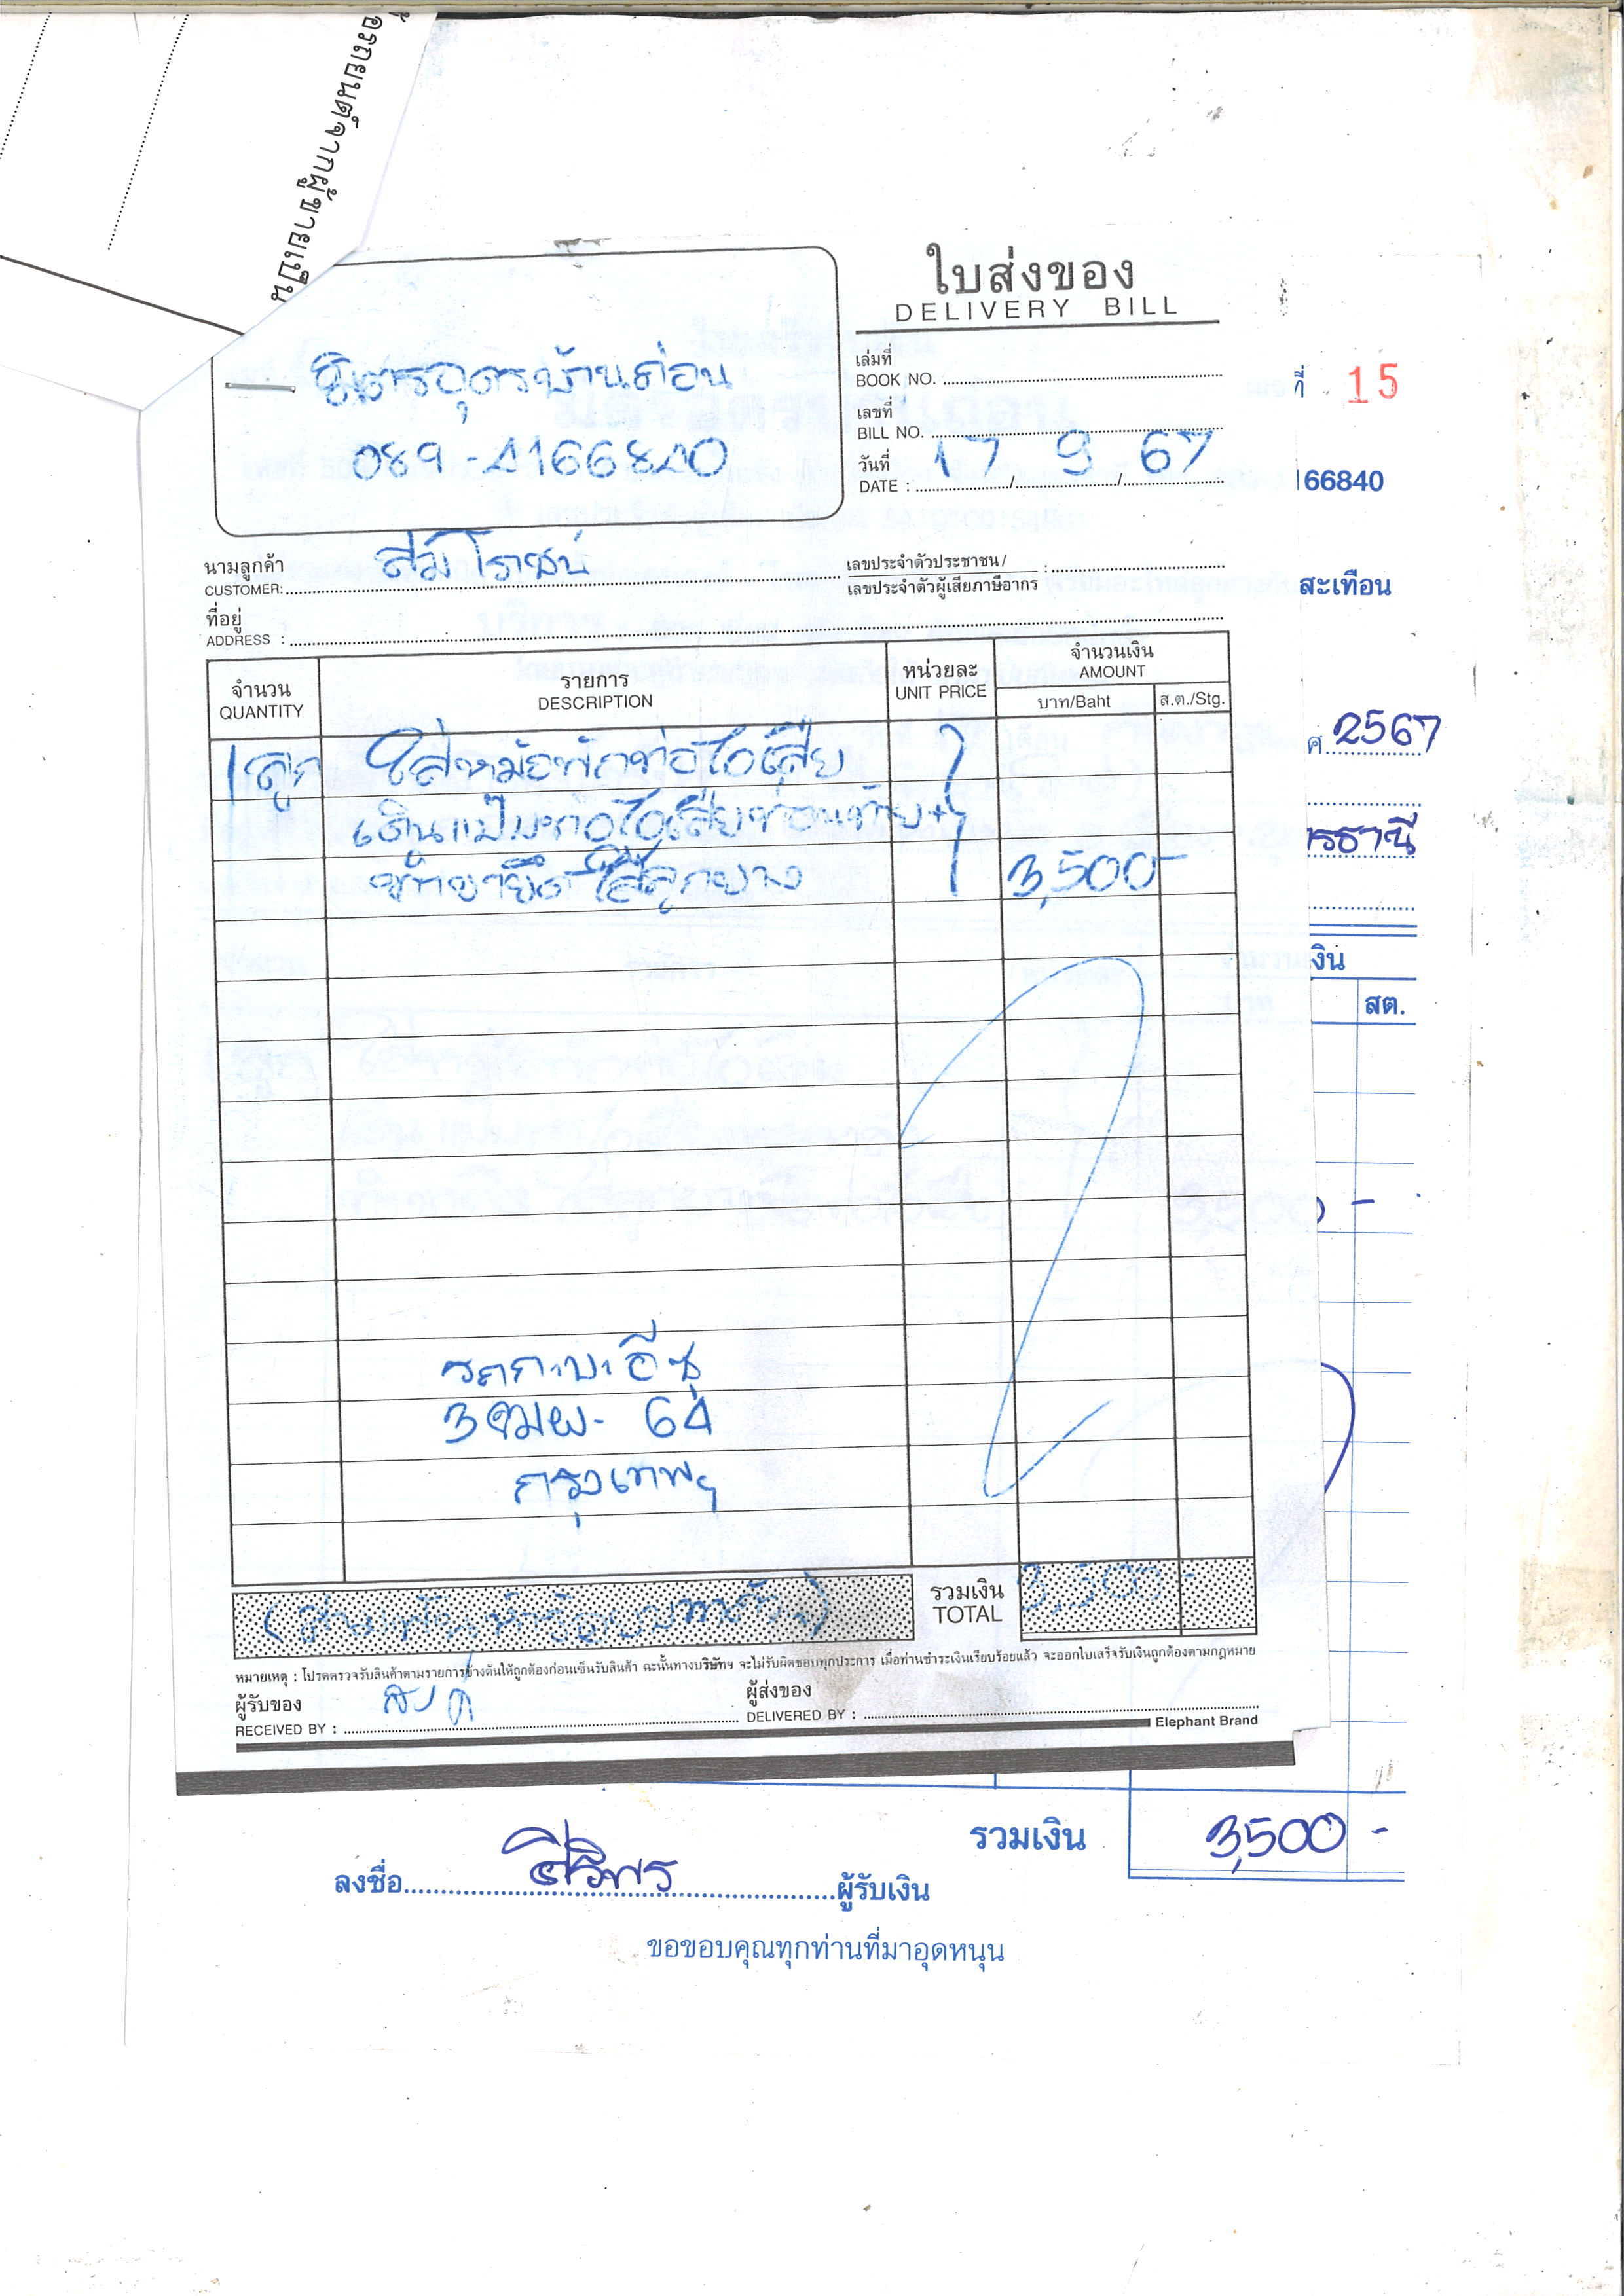 อรถยนต์จากผู้ขายเป็น
ใบส่งของ
DELIVERY BILL
มิตรอุดรบ้านถ่อน
089-4166840
เล่มที่
BOOK NO.
เลขที่
BILL NO.
วันที่
DATE : 17 / 9 / 67
ที่ 15
166840
นามลูกค้า
CUSTOMER:
เลขประจำตัวประชาชน /
เลขประจำตัวผู้เสียภาษีอากร :
สะเทือน
ที่อยู่
ADDRESS :
จำนวน
QUANTITY
รายการ
DESCRIPTION
หน่วยละ
UNIT PRICE
จำนวนเงิน
AMOUNT
บาท/Baht
ส.ต./Stg.
ศ. 2567
1 ลูก ใส่หม้อพักท่อไอเสีย
เดินแป๊บท่อไอเสียท่อนท้าย+
ขายึด ใส่ลูกยาง 3,500-
รธานี
งิน
สต.
รถกะบะอีซุ
3ฒผ- 64
กรุงเทพฯ
รวมเงิน
TOTAL
3,500 -
หมายเหตุ : โปรดตรวจรับสินค้าตามรายการข้างต้นให้ถูกต้องก่อนเซ็นรับสินค้า ฉะนั้นทางบริษัทฯ จะไม่รับผิดชอบทุกประการ เมื่อท่านชำระเงินเรียบร้อยแล้ว จะออกใบเสร็จรับเงินถูกต้องตามกฎหมาย
ผู้รับของ
RECEIVED BY :
ผู้ส่งของ
DELIVERED BY :
Elephant Brand
รวมเงิน 3,500 -
ลงชื่อ ศิริพร ผู้รับเงิน
ขอขอบคุณทุกท่านที่มาอุดหนุน